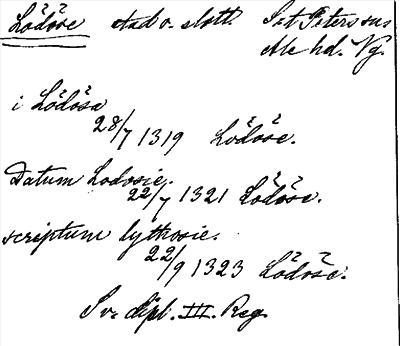 Lödöse stad o. slott. S:t Peters sn
Ale hd. Vg.
i Lödösa
28/7 1319 Lödöse.
Datum Lodosie.
22/7 1321 Lödöse.
scriptum lythosie.
22/9 1323 Lödöse.
Sv. dipl. III. Reg.